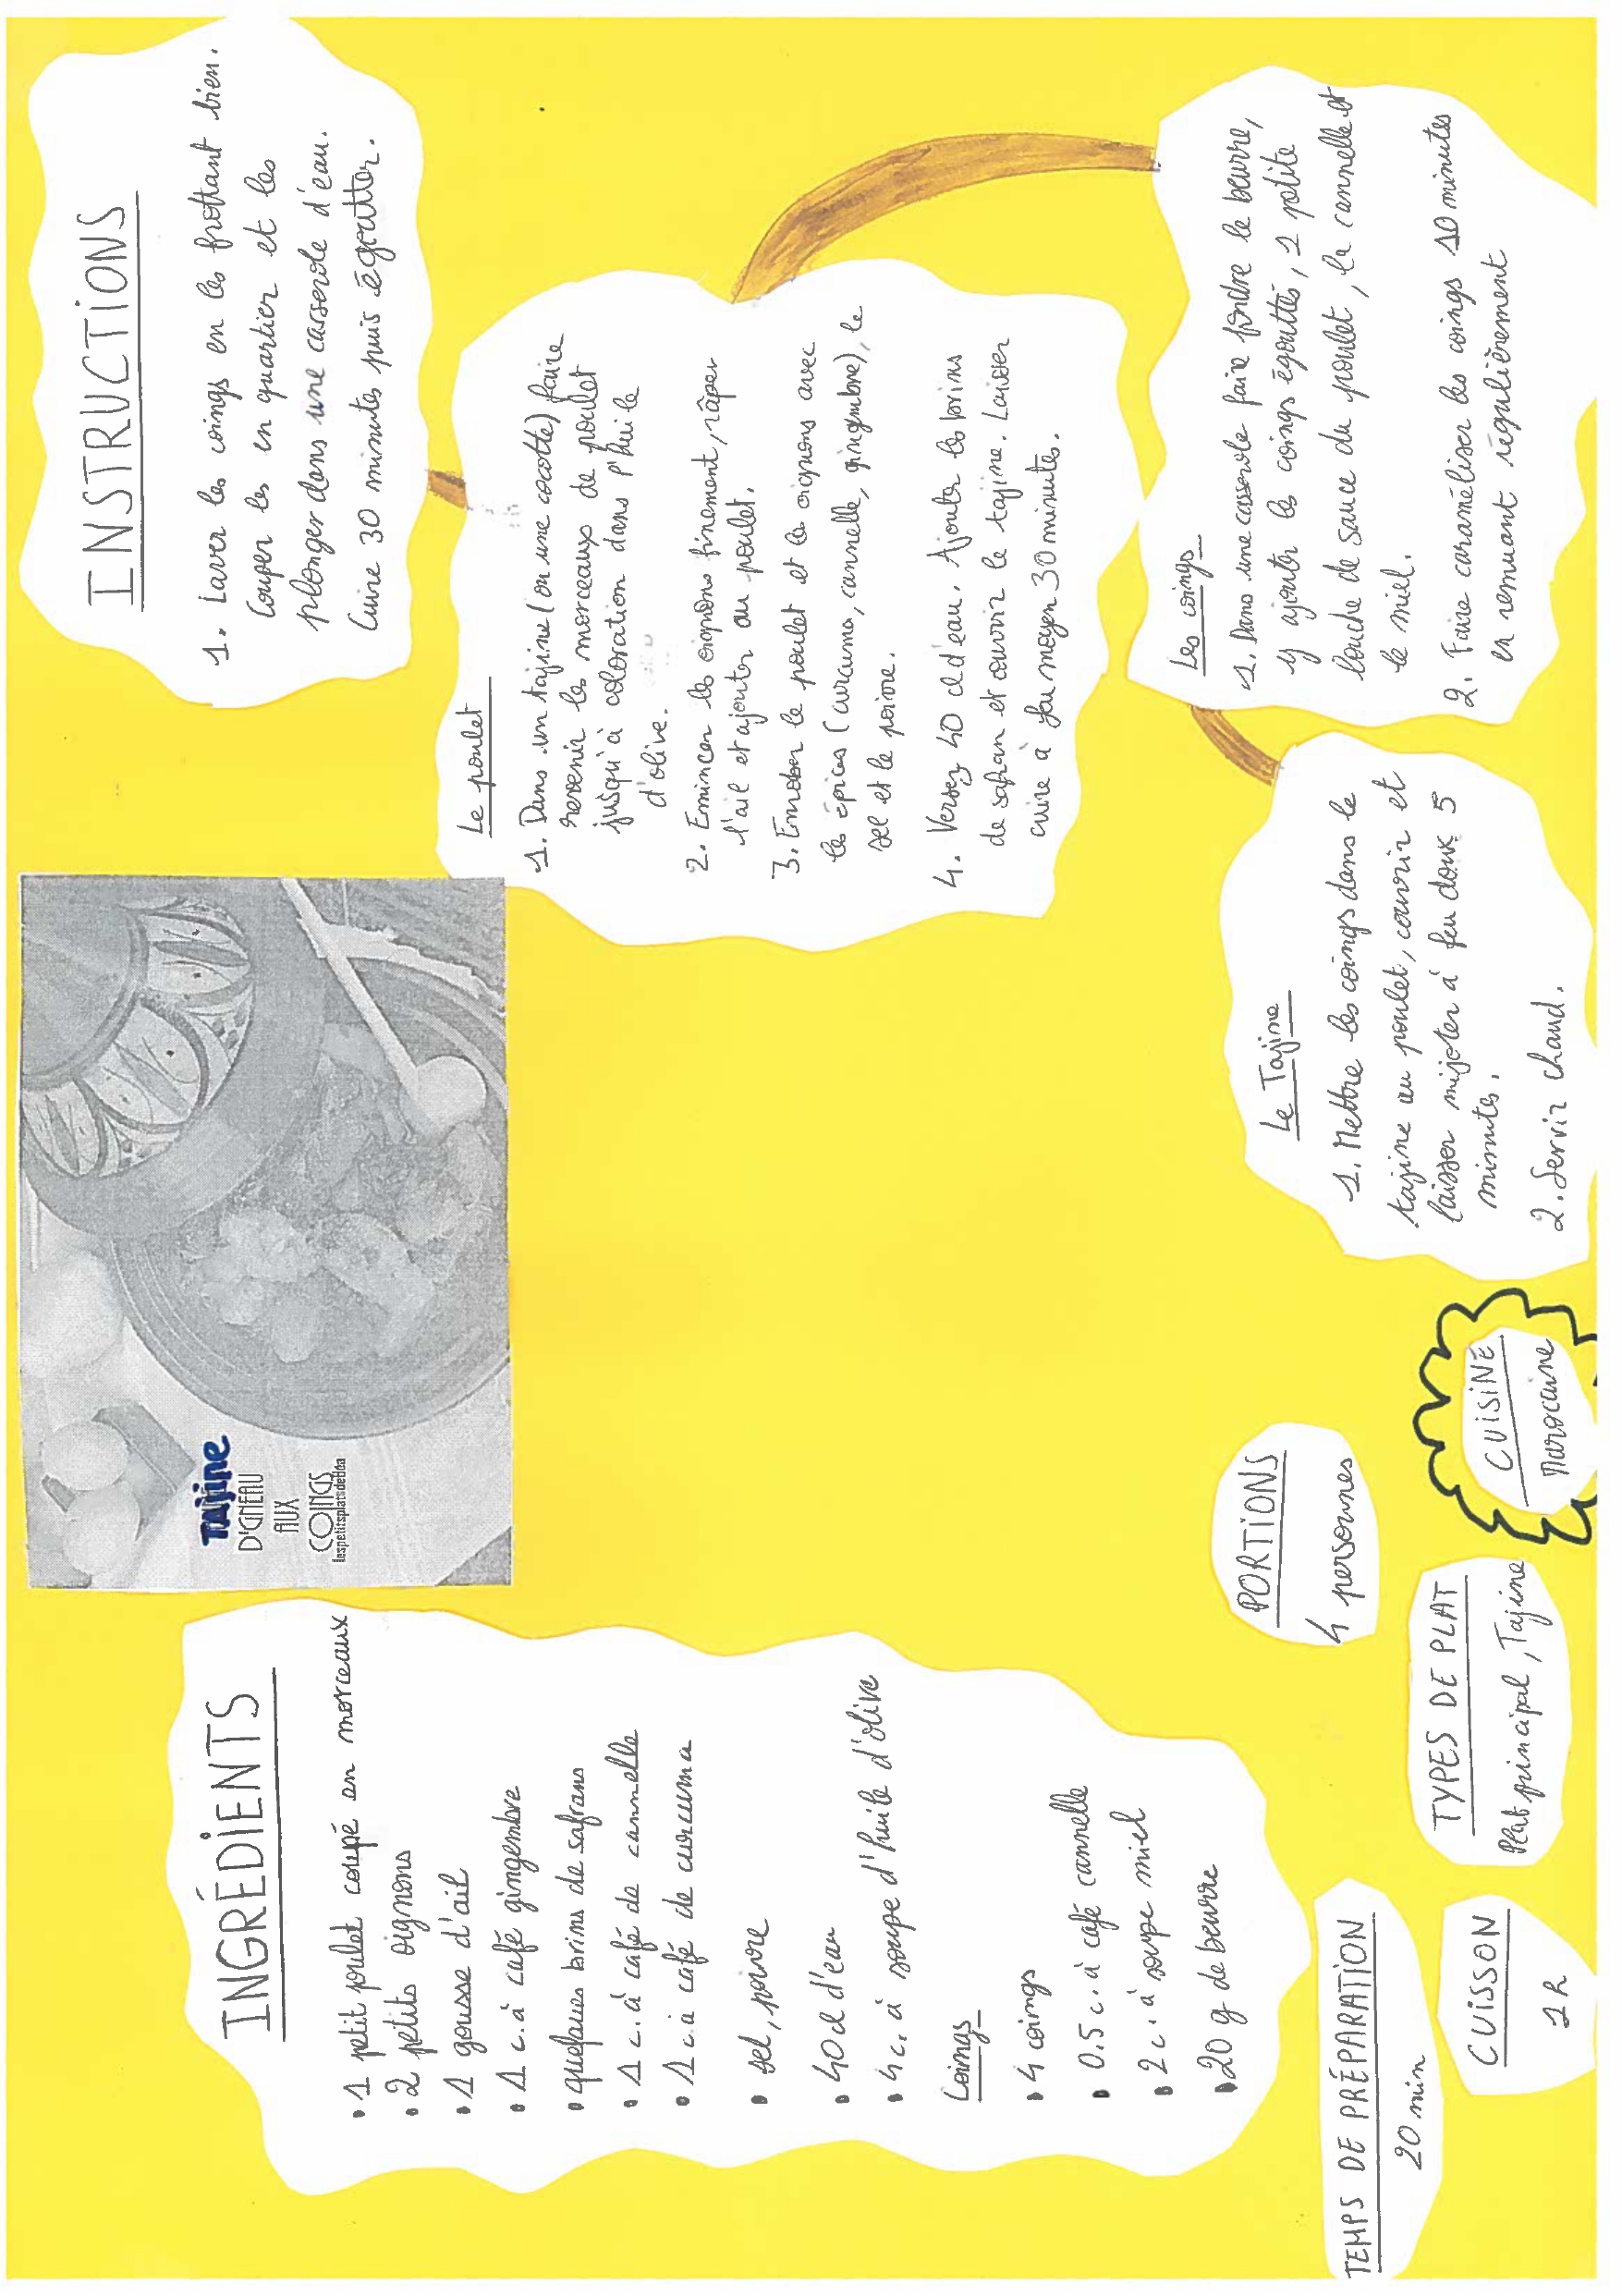 INGRÉDIENTS
• 1 petit poulet coupé en morceaux
• 2 petits oignons
• 1 gousse d'ail
• 1 c. à café gingembre
• quelques brins de safrans
• 1 c. à café de cannelle
• 1 c. à café de curcuma
• sel, poivre
• 40 cl d'eau
• 4 c. à soupe d'huile d'olive
Coings
• 4 coings
• 0.5 c. à café cannelle
• 2 c. à soupe miel
• 20 g de beurre
TEMPS DE PRÉPARATION
20 min
CUISSON
1 h
TYPES DE PLAT
Plat principal, Tajine
PORTIONS
4 personnes
CUISINE
Marocaine
TAjine
D'AGNEAU
AUX
COINGS
lespetitsplatsdebea
INSTRUCTIONS
1. Laver les coings en les frottant bien.
Couper les en quartier et les
plonger dans une casserole d'eau.
Cuire 30 minutes puis égoutter.
Le poulet
1. Dans un tajine (ou une cocotte) faire
revenir les morceaux de poulet
jusqu'à coloration dans l'huile
d'olive.
2. Emincer les oignons finement, râper
l'ail et ajouter au poulet.
3. Enrober le poulet et les oignons avec
les épices (curcuma, cannelle, gingembre), le
sel et le poivre.
4. Versez 40 cl d'eau. Ajouter les brins
de safran et couvrir le tajine. Laisser
cuire à feu moyen 30 minutes.
Les coings
1. Dans une casserole faire fondre le beurre,
y ajouter les coings égouttés, 1 petite
louche de sauce du poulet, la cannelle et
le miel.
2. Faire caraméliser les coings 10 minutes
en remuant régulièrement
Le Tajine
1. Mettre les coings dans le
tajine au poulet, couvrir et
laisser mijoter à feu doux 5
minutes.
2. Servir chaud.